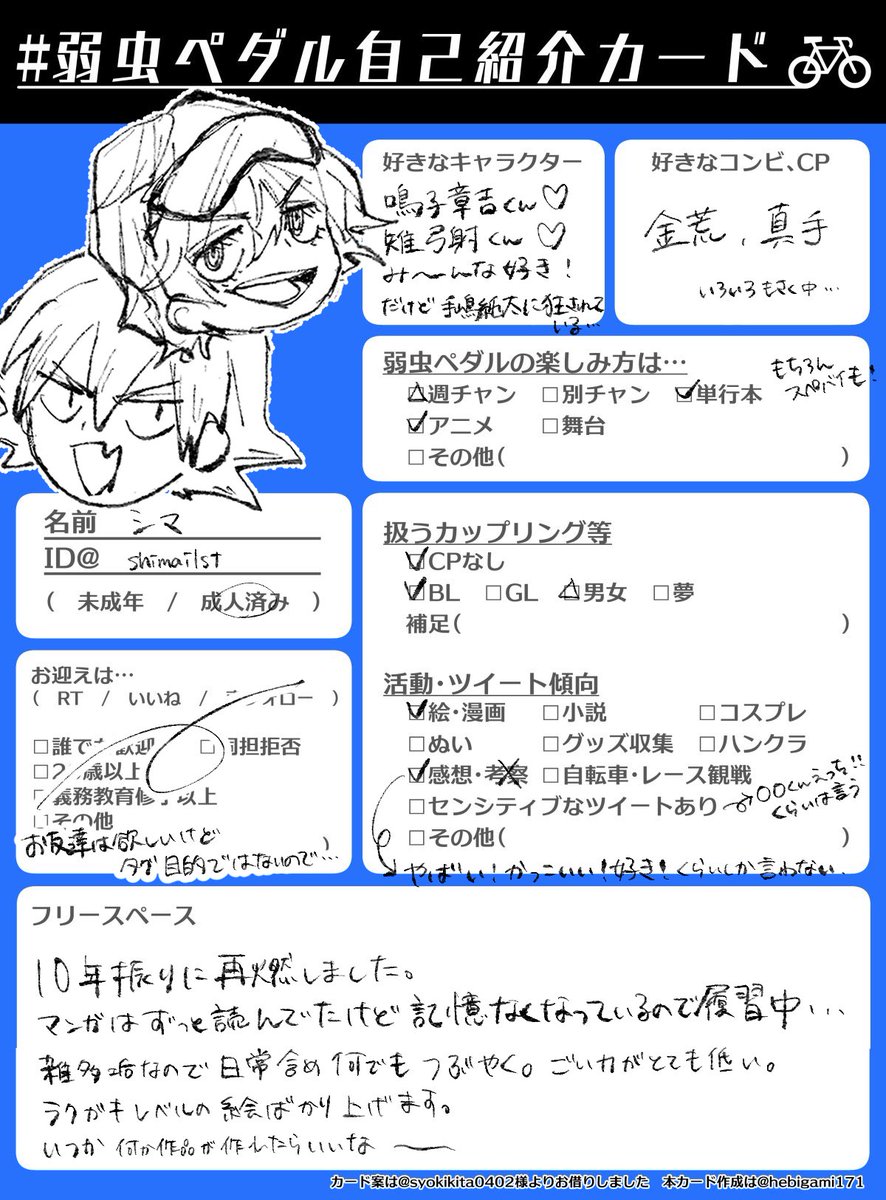 #弱虫ペダル自己紹介カード
好きなキャラクター
鳴子章吉くん♡
雉弓射くん♡
み〜んな好き!
だけど手嶋純太に狂されて
いる…
好きなコンビ、CP
金荒、真手
いろいろもさく中…
弱虫ペダルの楽しみ方は…
週チャン □別チャン 単行本
もちろん
スペバイも!
アニメ □舞台
□その他( )
名前 シマ
ID@ shimai1st
( 未成年 / 成人済み )
扱うカップリング等
CPなし
BL □GL 男女 □夢
補足( )
お迎えは…
( RT / いいね / フォロー )
□誰でも歓迎 □同担拒否
□2 歳以上
□義務教育修了以上
□その他
お友達は欲しいけど
タグ目的ではないので…
)
活動・ツイート傾向
絵・漫画 □小説 □コスプレ
□ぬい □グッズ収集 □ハンクラ
感想・考察 □自転車・レース観戦
□センシティブなツイートあり →〇〇くんえっち!!
くらいは言う
□その他( )
やばい!かっこいい!好き!くらいしか言わない
フリースペース
10年振りに再燃しました。
マンガはずっと読んでたけど記憶なくなっているので履習中…
雑多垢なので日常含め何でもつぶやく。ごい力がとても低い。
ラクガキレベルの絵ばかり上げます。
いつか何か作品が作れたらいいな〜
カード案は@syokikita0402様よりお借りしました 本カード作成は@hebigami171